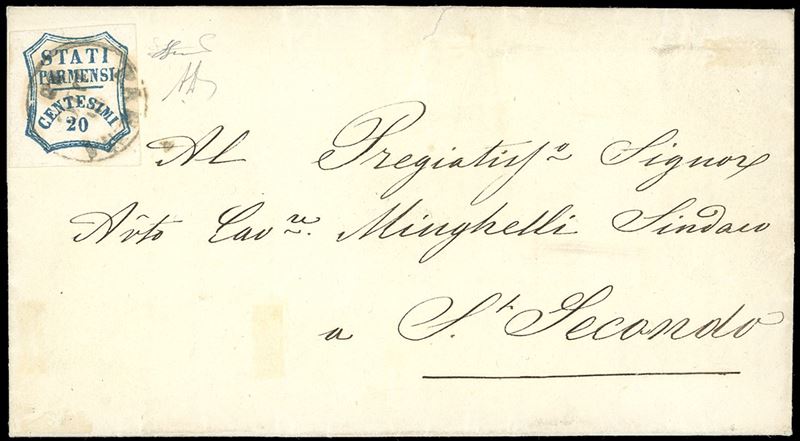 STATI
PARMENSI
CENTESIMI
20
Al Pregiatisso Signor
Avto Cavre. Minghelli Sindaco
a St. Secondo